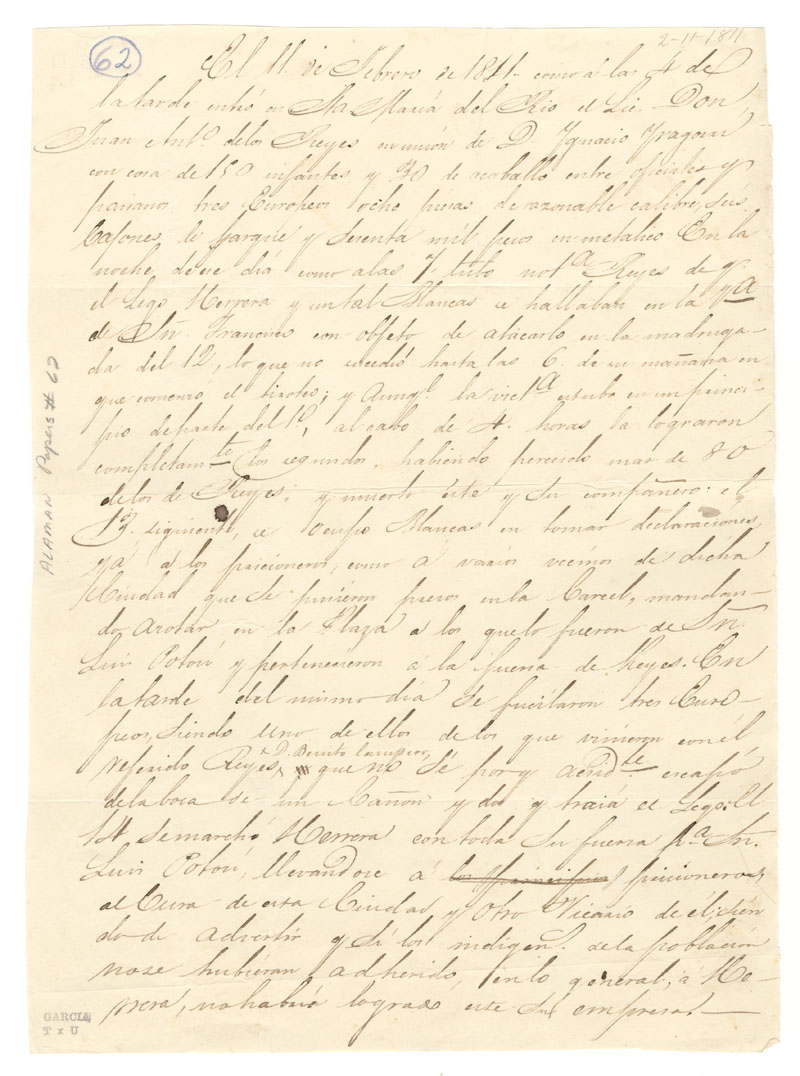 62
2-11-1811
El 11. de Febrero de 1811. como á las 4 de
la tarde entró en Sta María del Rio el Lic. Don
Juan Anto. delos Reyes en unión de D Ygnacio Yragorri
con cosa de 150 infantes y 30 de acaballo entre oficiales y
paisanos tres Europeos ocho piesas de razonable calibre, seis
Cajones de parque y sesenta mil pesos en metalico. En la
noche de ese día como alas 7 tubo nota. Reyes de q.
el Lego Herrera y un tal Blancas se hallaban en la
de Sn. Francisco con objeto de atacarlo en la madruga-
da del 12, lo que no sucedió hasta las 6. de su mañana en
que comenzó el tiroteo; y aunq. la victa. estubo en un princi-
pio de parte del 1o, al cabo de 4. horas la lograron
completamte. los segundos, habiendo perecido mas de 80
delos de Reyes; y muerto éste y su compañero: el
13. siguiente, se ocupó Blancas en tomar declaraciones,
ya á los pricioneros, como á varios vecinos de dicha
Ciudad que se pusieron presos en la Carcel, mandan-
do azotar en la Plaza á los que lo fueron de Sn.
Luis Potosí y pertenecieron á la fuersa de Reyes. En
la tarde del mismo día se fucilaron tres Euro-
peos, siendo uno de ellos de los que vinieron con él
referido Reyes, D. Benito que no sé por q acidte. escapó
dela boca de un Cañon y do q traiá el Lego: El
14 se marchó Herrera con toda su fuersa pa. Sn.
Luis Potosí, llevandose á los principa pricioneros,
al Cura de esta Ciudad y otro Vicario de él; sien
do de advertir q si los indigens. de la población
no se hubierán adherido, en lo general, á He-
rrera, no habriá logrado este su empresa.
ALAMAN Papers # 62
GARCIA
T x U